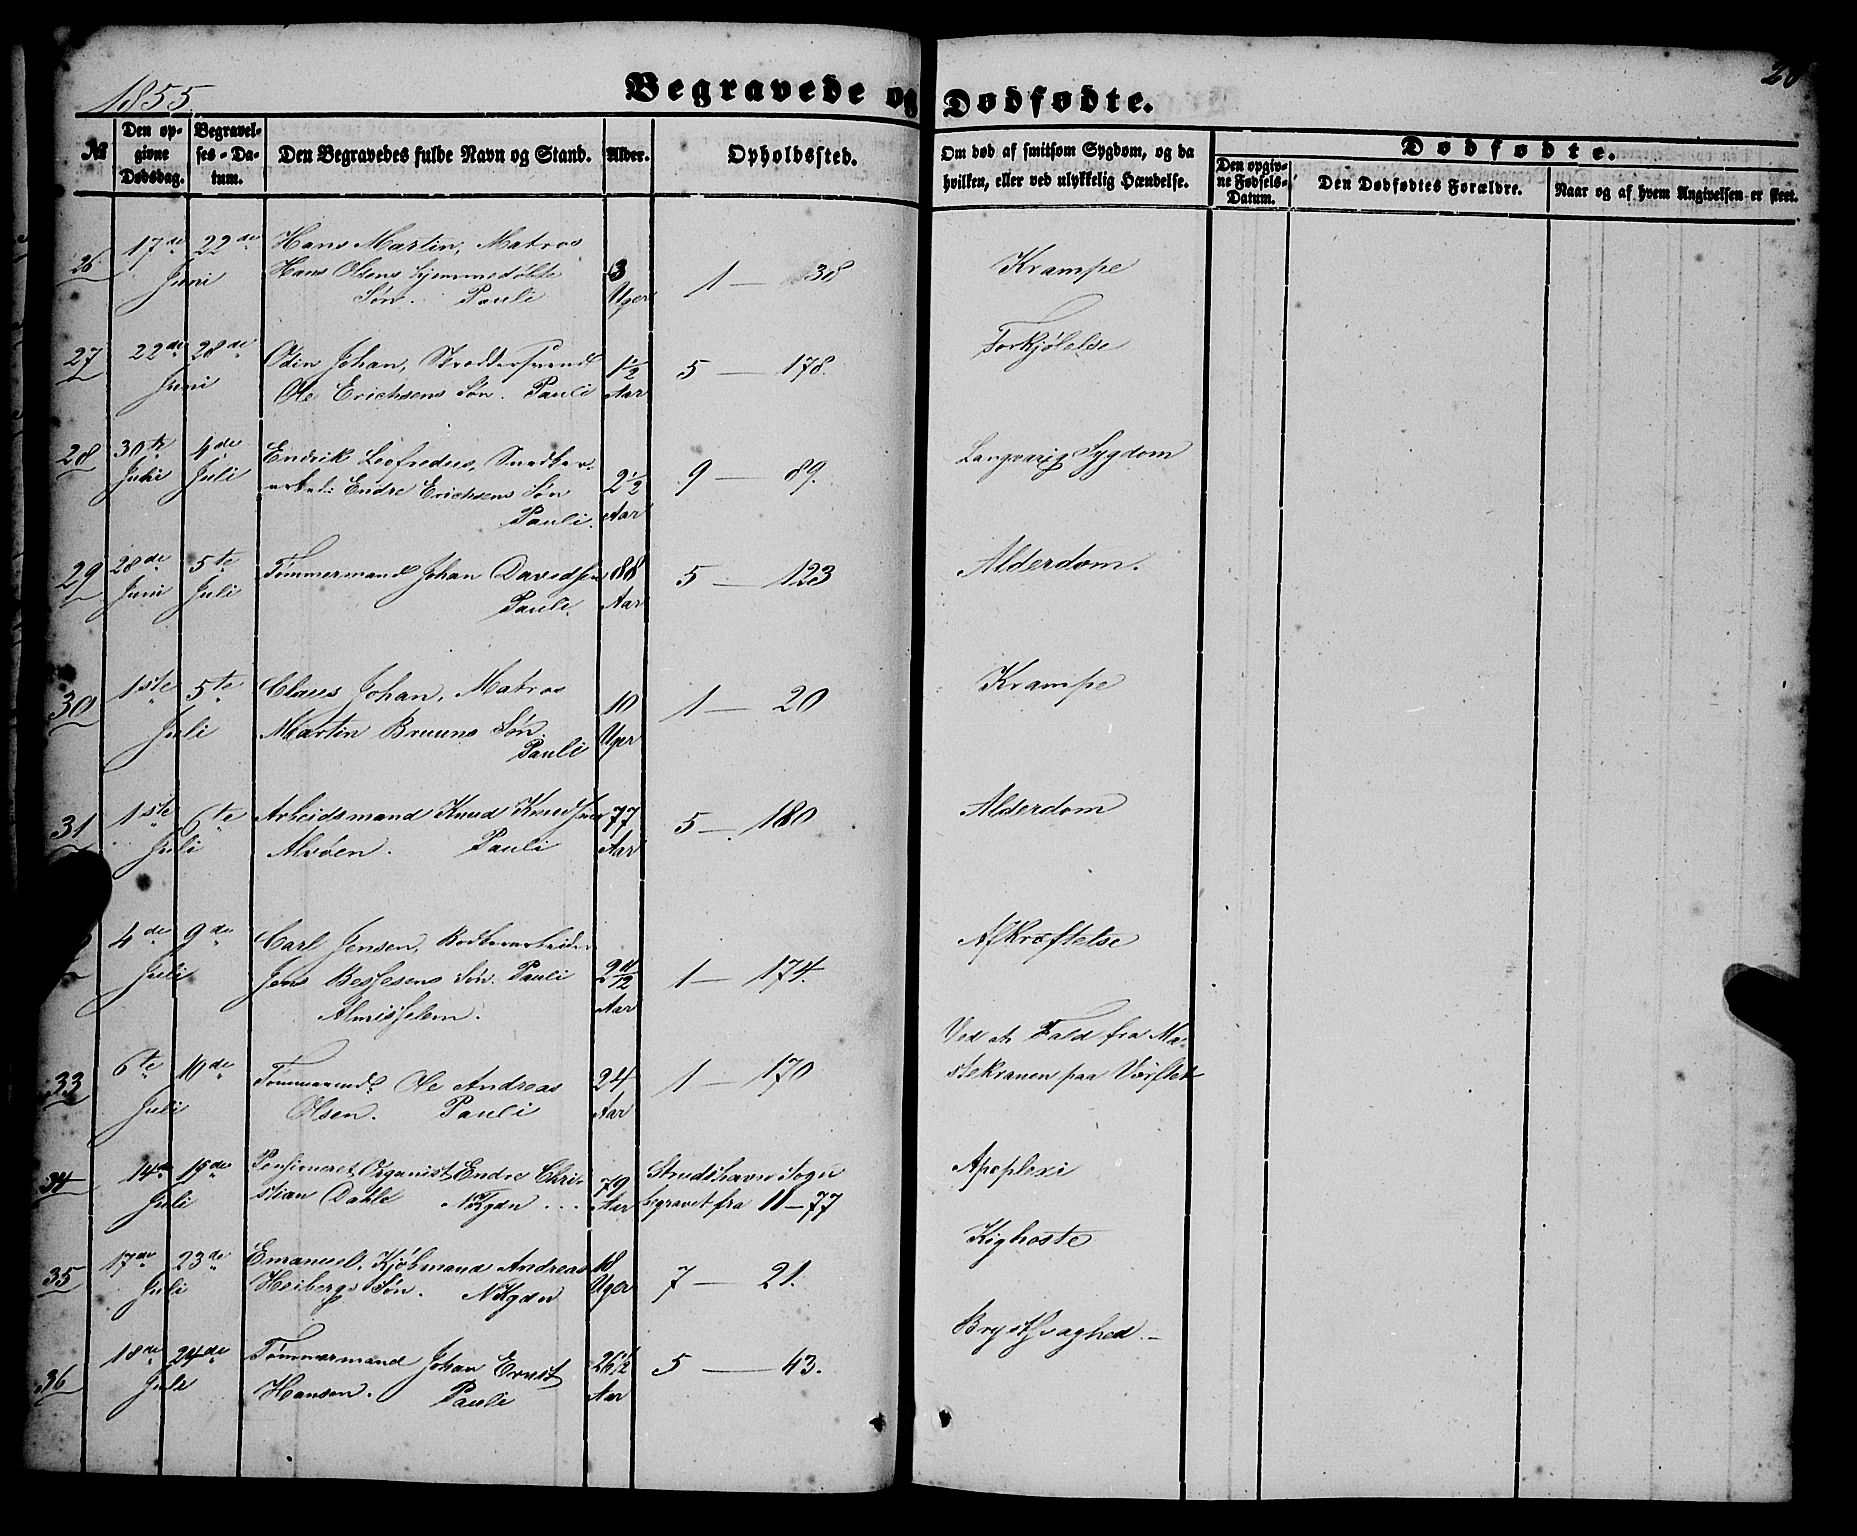 1855.
Begravede og Dødfødte.
28
№
Den op-
givne
Dødsdag.
Begravel-
ses-Da-
tum.
Den Begravedes fulde Navn og Stand.
Alder.
Opholdssted.
Om død af smitsom Sygdom, og da
hvilken, eller ved ulykkelig Hændelse.
Dødfødte.
Den opgiv-
ne Fødsels-
Datum.
Den Dødfødtes Forældre.
Naar og af hvem Angivelsen er skeet.
26
17de Juni
22de
Hans Martin, Matros
Hans Olsens hjemmedøbte
Søn. Pauli
3
Uger
1 — 38
Krampe
27
22de Juni
28de
Odin Johan, Skrædersvend
Ole Erichsens Søn. Pauli
1½
Aar
5 — 178.
Forkjølelse
28
30te
Juni
4de
Juli
Endrik Leofredus, Snedker-
arbeid: Endre Erichsens Søn
Pauli.
2½
Aar
9 — 89.
Langvarig Sygdom
29
28de
Juni
5te
Juli
Tømmermand Johan Davidsen
Pauli.
88
Aar
5 — 123
Alderdom.
30
1ste Juli
5te
Claus Johan, Matros
Martin Bruuns Søn.
Pauli
10
Uger
1 — 20
Krampe
31
1ste Juli
6te
Arbeidsmand Knud Knudsen
Alvøen. Pauli
77
Aar
5 — 180
Alderdom
4de Juli
9de
Carl Jensen, Bødkerarbeider
Jens Søn. Pauli
2 11/12
Aar
1 — 174.
Afkræftelse
33
6te Juli
10de
Tømmermd. Ole Andreas
Olsen. Pauli
24
Aar
1 — 170
Ved et Fald fra Ma-
stekranen paa Værftet
34
14de Juli
19de
Pensioneret Organist Endre Chri-
stian Dahle NKgdn ...
79
Aar
Strudshavn Sogn
begravet fra 11 — 77
Apoplexi
35
17de Juli
23de
Emanuel, Kjøbmand Andreas
Heibergs Søn. NKgdn
18
Uger
7 — 21.
Kighoste
36
18de Juli
24de
Tømmermand Johan Ernst
Hansen. Pauli
26½
Aar
5 — 43.
Brystsvaghed. —